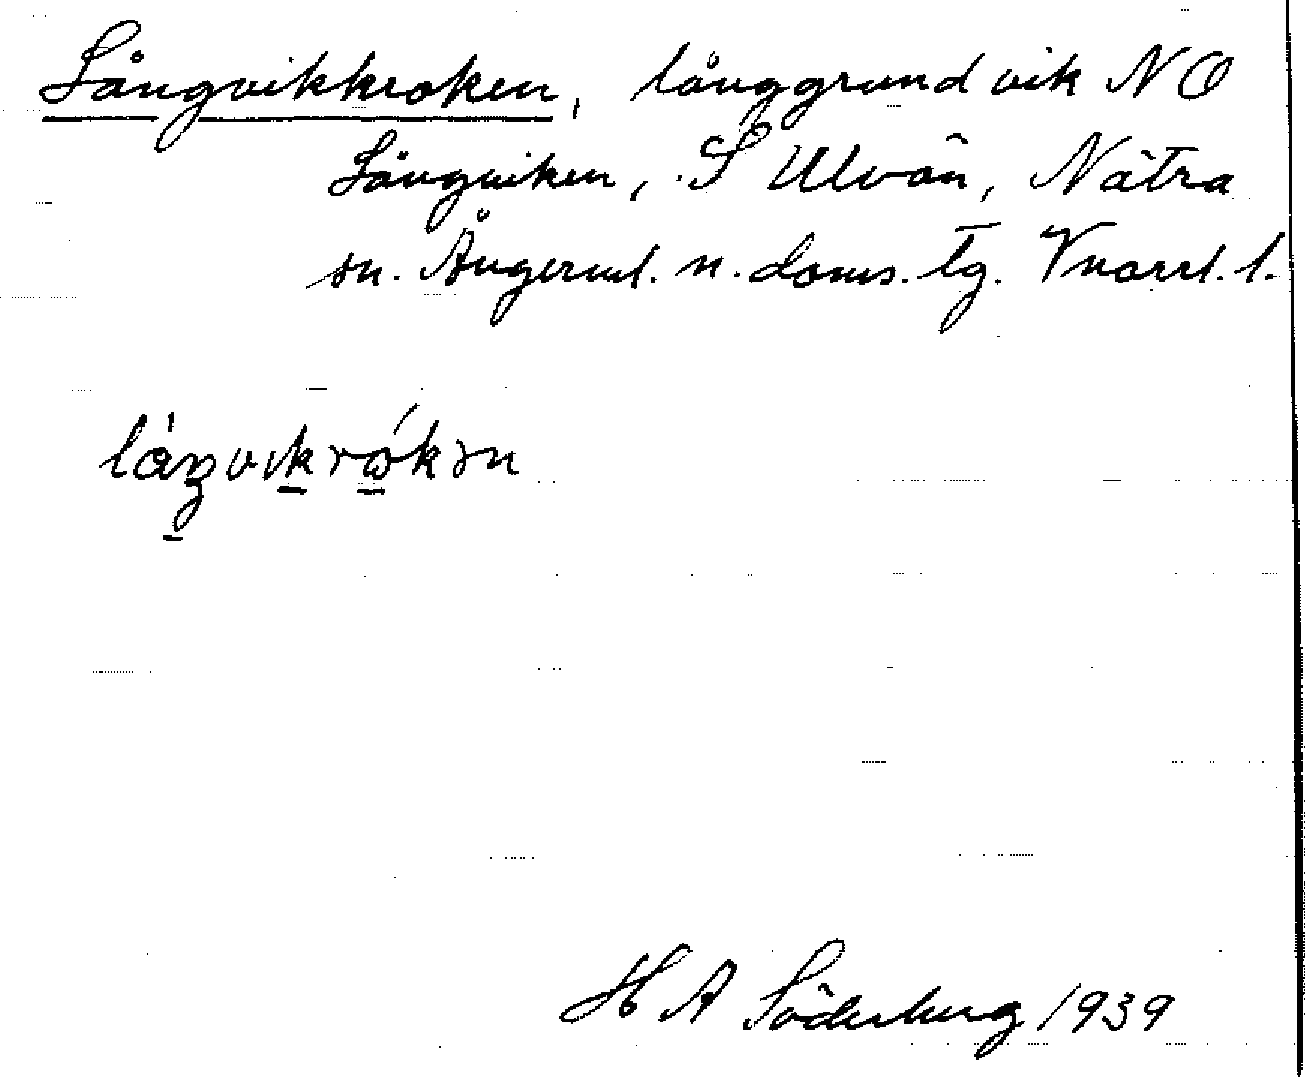 Långvikkroken, långgrund vik NO
Långviken, S Ulvön, Nätra
sn. Ångerml. n. doms. tg. Vnorrl. l.
låŋvikrɷ́kən
H A Söderberg 1939